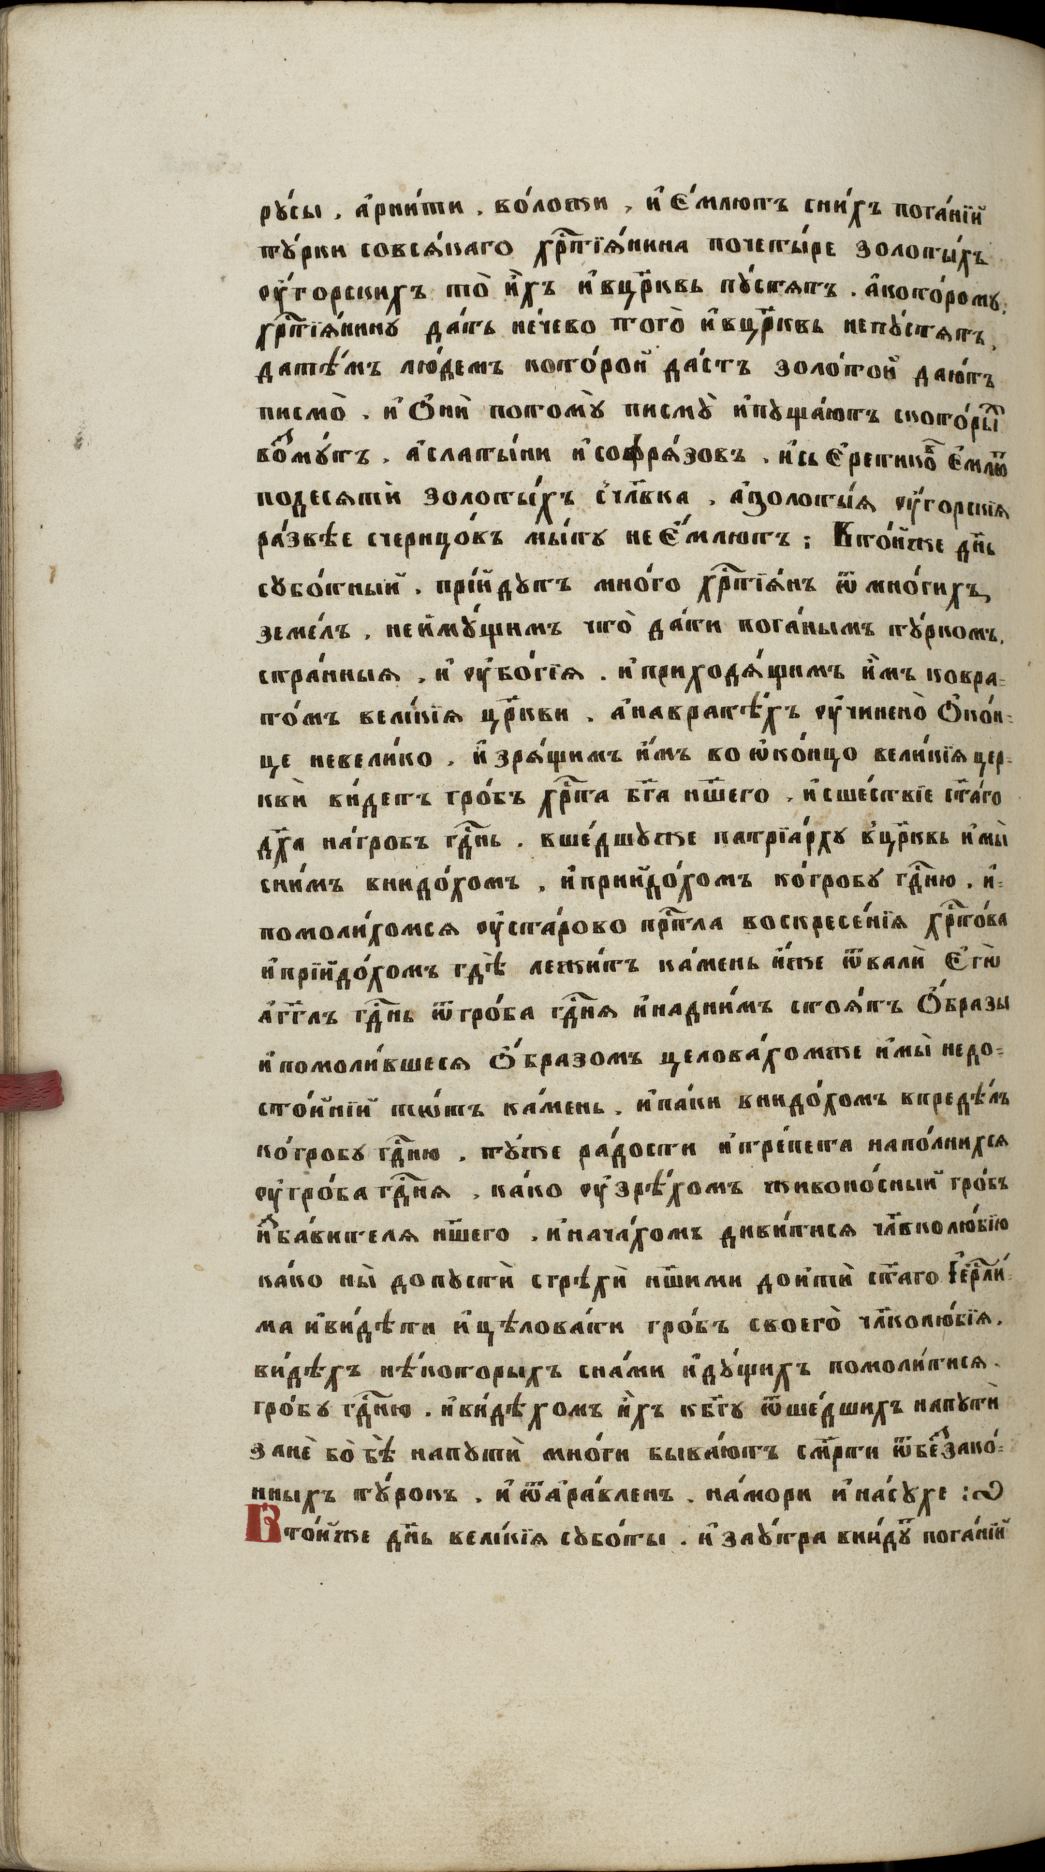 ру́сы , а҆рни́ти , во́лоти , и҆ є҆́млютъ сни́хъ пога́нїй
ту́рки совся́каго хрⷭ҇тїя́нина почеты́ре золоты́хъ
ѹ҆горскихъ то̀ и҆́хъ и҆вцр҃квь пу́стятъ . а҆кото́рому
хрⷭ҇тїя́нину да́ть не́чево того̀ и҆вцр҃квь непу́стятъ ,
датѣ́мъ лю́демъ кото́рой да́стъ золото́й даю́тъ
писмо̀ . и҆ ѻ҆нѝ потомꙋ̀ писмꙋ̀ и҆пуща́ютъ ското́рыⷨ
возму́тъ . а҆слаты́ни и҆софря́зовъ . и҆съ є҆ретикоⷡ҇ є҆млюⷮ
подесятѝ золоты́хъ сч҃лвка . а҆золоты́я ѹ҆горскїя
ра́звѣе счерицо́въ мы́ту не є҆́млютъ ; Вто́йже дн҃ь
субо́тный . прїи́дутъ мно́го хрⷭ҇тїя́нъ ѿ мно́гихъ
земе́лъ , неи҆му́щимъ что̀ да́ти пога́нымъ ту́ркомъ .
стра́нныя , и҆ ѹ҆бо́гїя . и҆приходя́щимъ и҆̀мъ ковра-
то́мъ вели́кїя цр҃кви . а҆навратѣ́хъ ѹ҆чинено̀ ѻ҆ко́н-
це невели́ко . и҆ зря́щимъ и҆́мъ во ѡ҆ко́нцо вели́кїя цер-
квѝ ви́детъ гро́бъ хрⷭ҇та бг҃а нш҃его . и҆сше́ствїе ст҃а́го
дх҃а на́гробъ гдⷭ҇нь . вше́дшуже патрїа́рху вцр҃квь и҆мы̀
сни́мъ внидо́хомъ , и҆прийдо́хомъ ко́гробу гдⷭ҇ню . и҆-
помоли́хомся ѹ҆ста́рово прⷭ҇тла воскресе́нїя хрⷭ҇то́ва
и҆прїйдо́хомъ гдѣ̀ лежи́тъ ка́мень и҆́же ѿвалѝ є҆гѡ̀
а҆́гг҃лъ гдⷭ҇нь ѿгро́ба гдⷭ҇ня и҆надни́мъ стоя́тъ ѻ҆́бразы
и҆помоли́вшеся ѻ҆́бразомъ целова́хомже и҆мы̀ недо-
сто́йнїй тѡ́тъ ка́мень . и҆па́ки внидо́хомъ впредѣ́лъ
ко́гробу гдⷭ҇ню . ту́же ра́дости и҆тре́пета напо́лнихся
ѹ҆гро́ба гдⷭ҇ня , ка́ко ѹ҆зрѣ́хомъ живоно́сный гро́бъ
и҆зба́вителя нш҃его . и҆нача́хомъ диви́тися чл҃вколю́бїю
ка́ко ны̀ допустѝ сгрѣхѝ нш҃ими доитѝ ст҃аго і҆ерⷭ҇ли́-
ма и҆ви́дѣти и҆цѣлова́ти гро́бъ своего̀ чл҃колю́бїя .
ви́дѣхъ нѣ́которыхъ сна́ми и҆ду́щихъ помоли́тися .
гро́бу гдⷭ҇ню . и҆ви́дѣхомъ и҆́хъ кбг҃у ѿше́дшихъ напутѝ
занѐ бо̀ бѣ̀ напутѝ мно́ги быва́ютъ см҃рти ѿбезако́-
нныхъ ту́рокъ . и҆ ѿара́влепъ . на́мори и҆на́сухе :~
Вто́йже дн҃ь вели́кїя субо́ты . и҆ зау́тра вни́дуⷮ пога́нїй